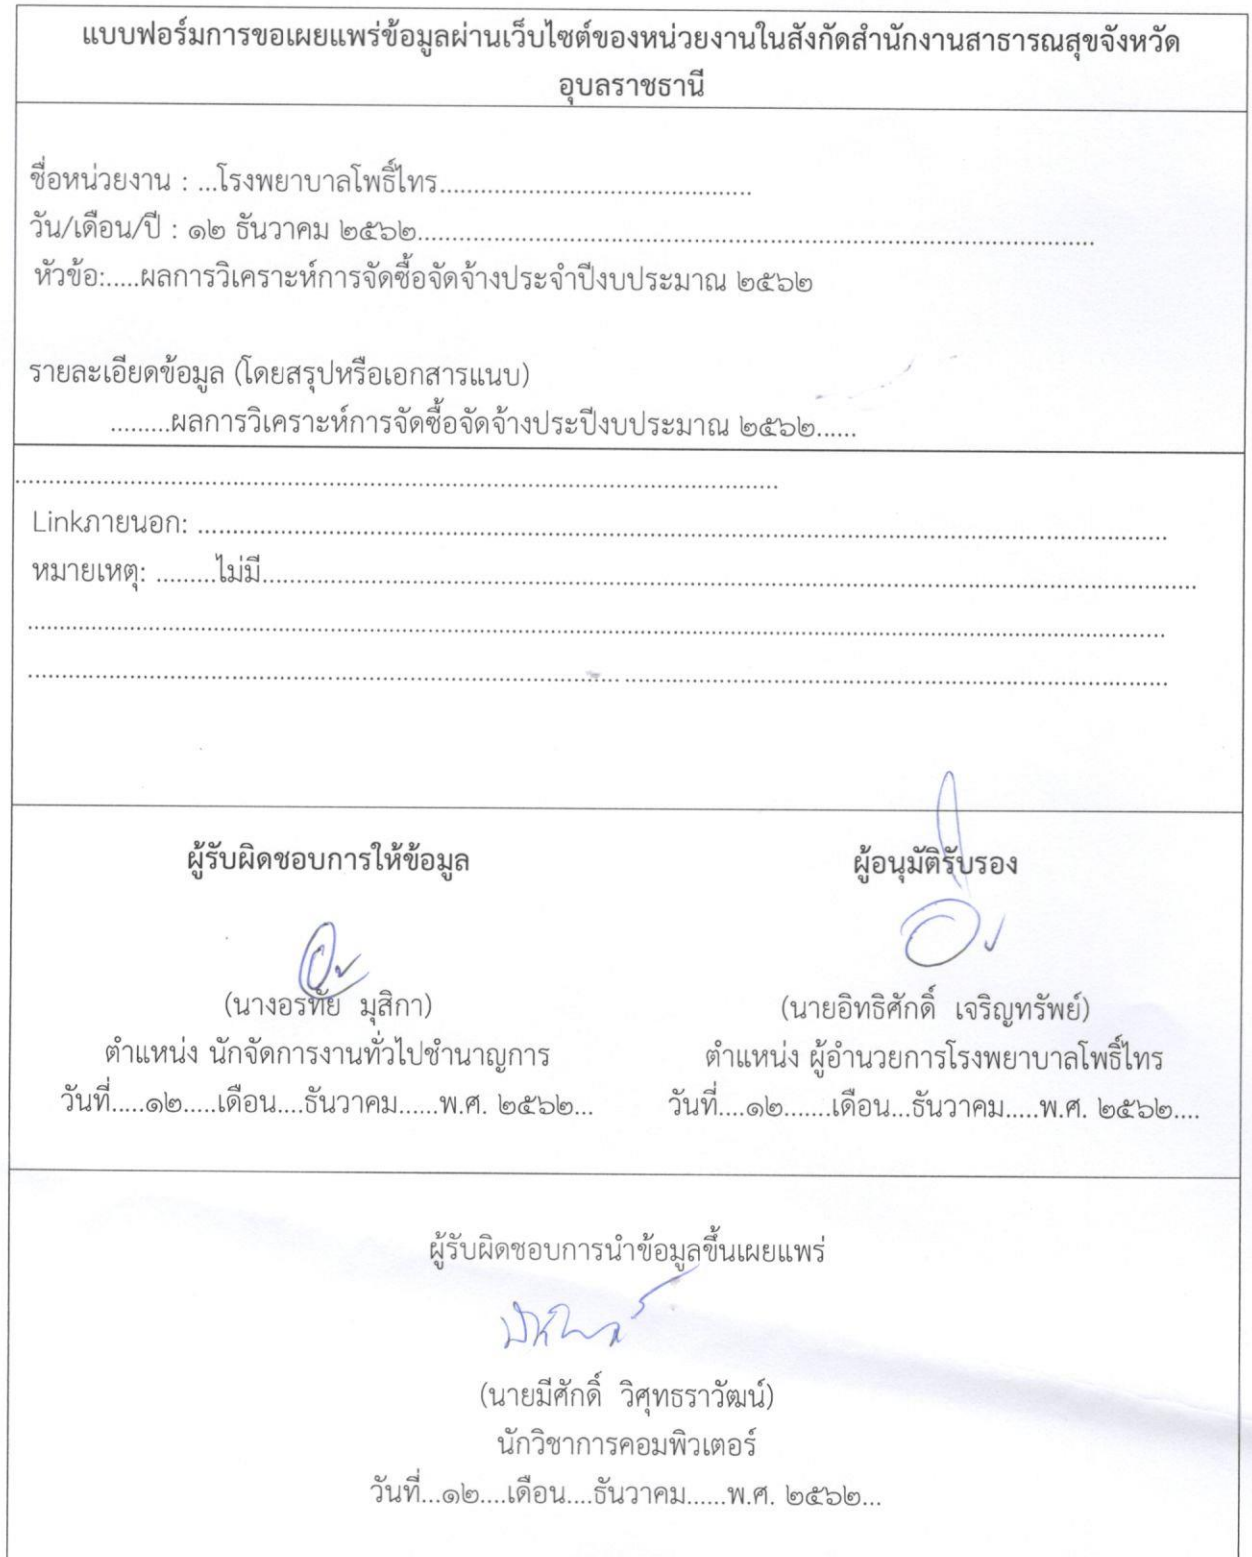 แบบฟอร์มการขอเผยแพร่ข้อมูลผ่านเว็บไซต์ของหน่วยงานในสังกัดสำนักงานสาธารณสุขจังหวัด
อุบลราชธานี
ชื่อหน่วยงาน : ...โรงพยาบาลโพธิ์ไทร..............................................
วัน/เดือน/ปี : ๑๒ ธันวาคม ๒๕๖๒....................................................................................................
หัวข้อ:.....ผลการวิเคราะห์การจัดซื้อจัดจ้างประจำปีงบประมาณ ๒๕๖๒
รายละเอียดข้อมูล (โดยสรุปหรือเอกสารแนบ)
.........ผลการวิเคราะห์การจัดซื้อจัดจ้างประปีงบประมาณ ๒๕๖๒......
................................................................................................................
Linkภายนอก: ..............................................................................................................................................
หมายเหตุ: .........ไม่มี.........................................................................................................................................
........................................................................................................................................................................
........................................................................................ ................................................................................
ผู้รับผิดชอบการให้ข้อมูล
(นางอรทัย มุสิกา)
ตำแหน่ง นักจัดการงานทั่วไปชำนาญการ
วันที่.....๑๒.....เดือน....ธันวาคม......พ.ศ. ๒๕๖๒...
ผู้อนุมัติรับรอง
(นายอิทธิศักดิ์ เจริญทรัพย์)
ตำแหน่ง ผู้อำนวยการโรงพยาบาลโพธิ์ไทร
วันที่....๑๒.......เดือน...ธันวาคม.....พ.ศ. ๒๕๖๒....
ผู้รับผิดชอบการนำข้อมูลขึ้นเผยแพร่
(นายมีศักดิ์ วิศุทธราวัฒน์)
นักวิชาการคอมพิวเตอร์
วันที่...๑๒....เดือน....ธันวาคม......พ.ศ. ๒๕๖๒...